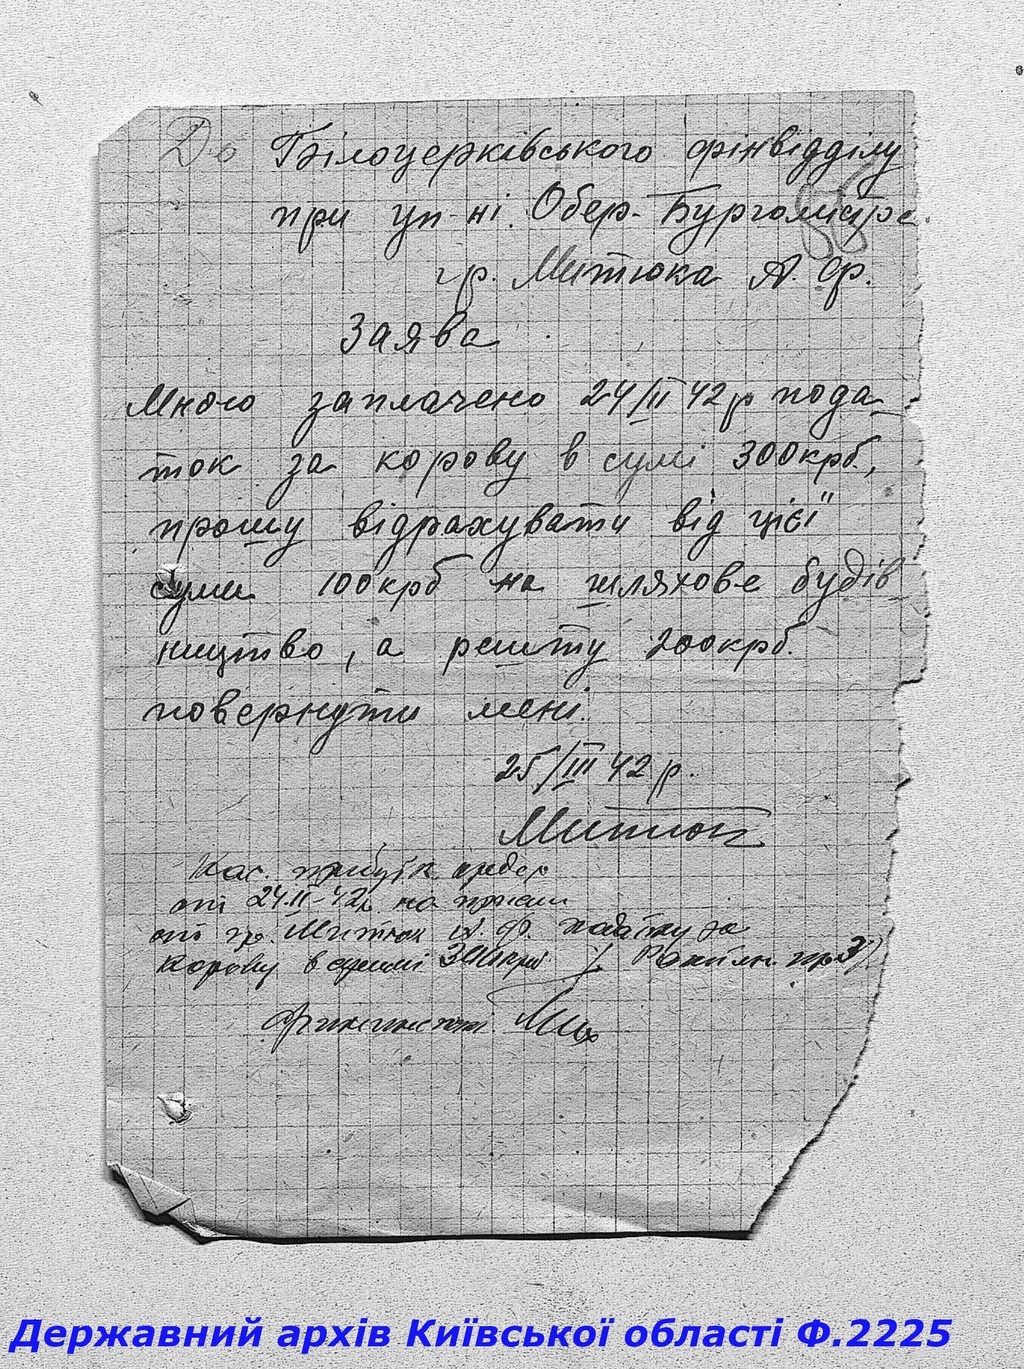 До Білоцерківського фінвідділу
88
при уп-ні Обер-Бургомістра
гр. Митюка А. Ф.
Заява
Мною заплачено 24/II 42р пода
ток за корову в сумі 300крб,
прошу відрахувати від цієї
суми 100крб на шляхове будів
ництво, а решту 200крб.
повернути мені.
25/III 42 р.
Митюк
Кас. прибутк ордер
от 24.II-42р на
от гр. Митюк А. Ф. податку за
корову в сумі 300крб
Фининспект.
Державний архів Київської області Ф.2225